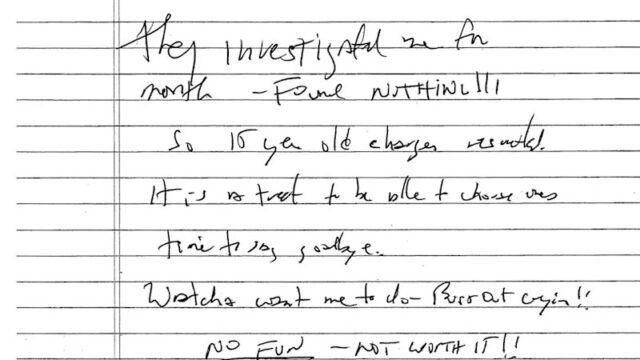 They investigated me for
month - Found NOTHING!!!
So 15 year old charges resulted.
It is a treat to be able to choose one's
time to say goodbye.
Watcha want me to do - Burst out cryin!!
NO FUN - NOT WORTH IT!!